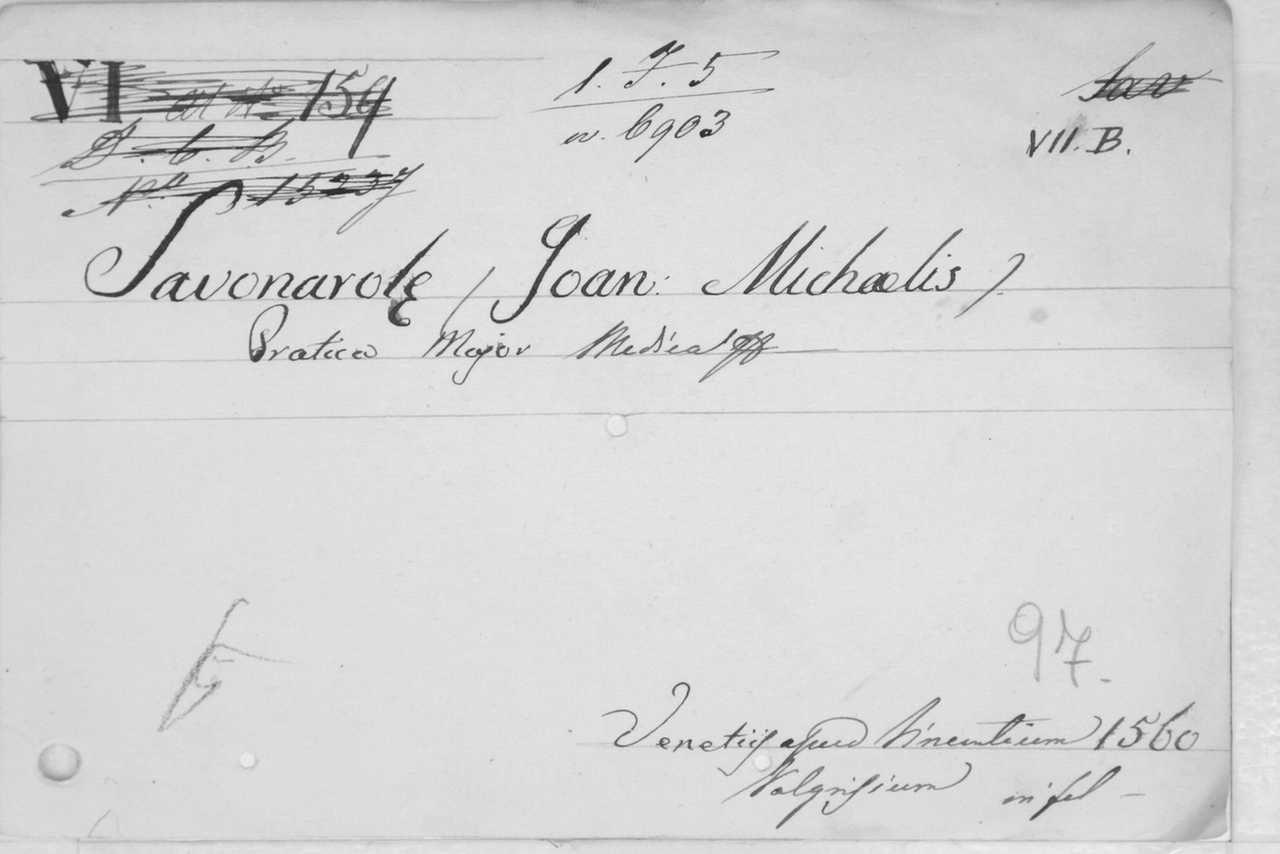 VI 159
D. b. B.
N.º 15237
1. F. 5
n. 6903
Sav
VII. B.
Savonarolę (Joan: Michaelis).
Pratica Major Medica
97.
Venetijs apud Vincentium 1560
Valgrisium in fol -